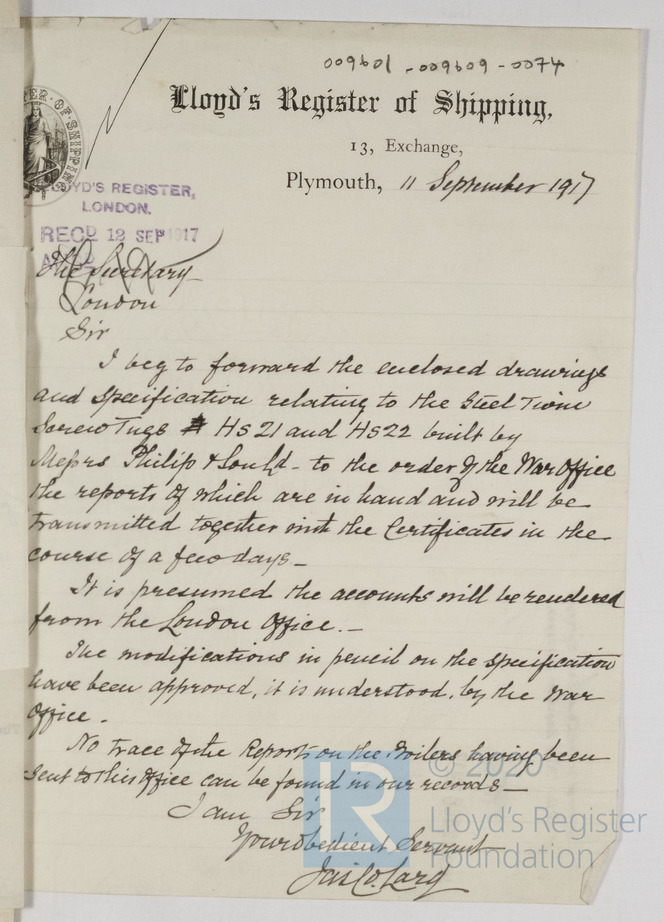 009601 - 009609 - 0074
Lloyd's Register of Shipping,
13, Exchange,
Plymouth, 11 September 1917
LLOYD'S REGISTER,
LONDON.
RECD 12 SEP 1917
The Secretary
London
Sir
I beg to forward the enclosed drawings
and specification relating to the Steel Twin
Screw Tugs HS21 and HS22 built by
Messrs Philip & Son Ld - to the order of the War Office
the reports of which are in hand and will be
transmitted together with the Certificates in the
course of a few days -
It is presumed the accounts will be rendered
from the London Office. -
The modifications in pencil on the specification
have been approved, it is understood, by the War
Office -
No trace of the Reports on the Boilers having been
sent to this Office can be found in our records -
I am Sir
Your obedient Servant
© 2020
Lloyd's Register
Foundation